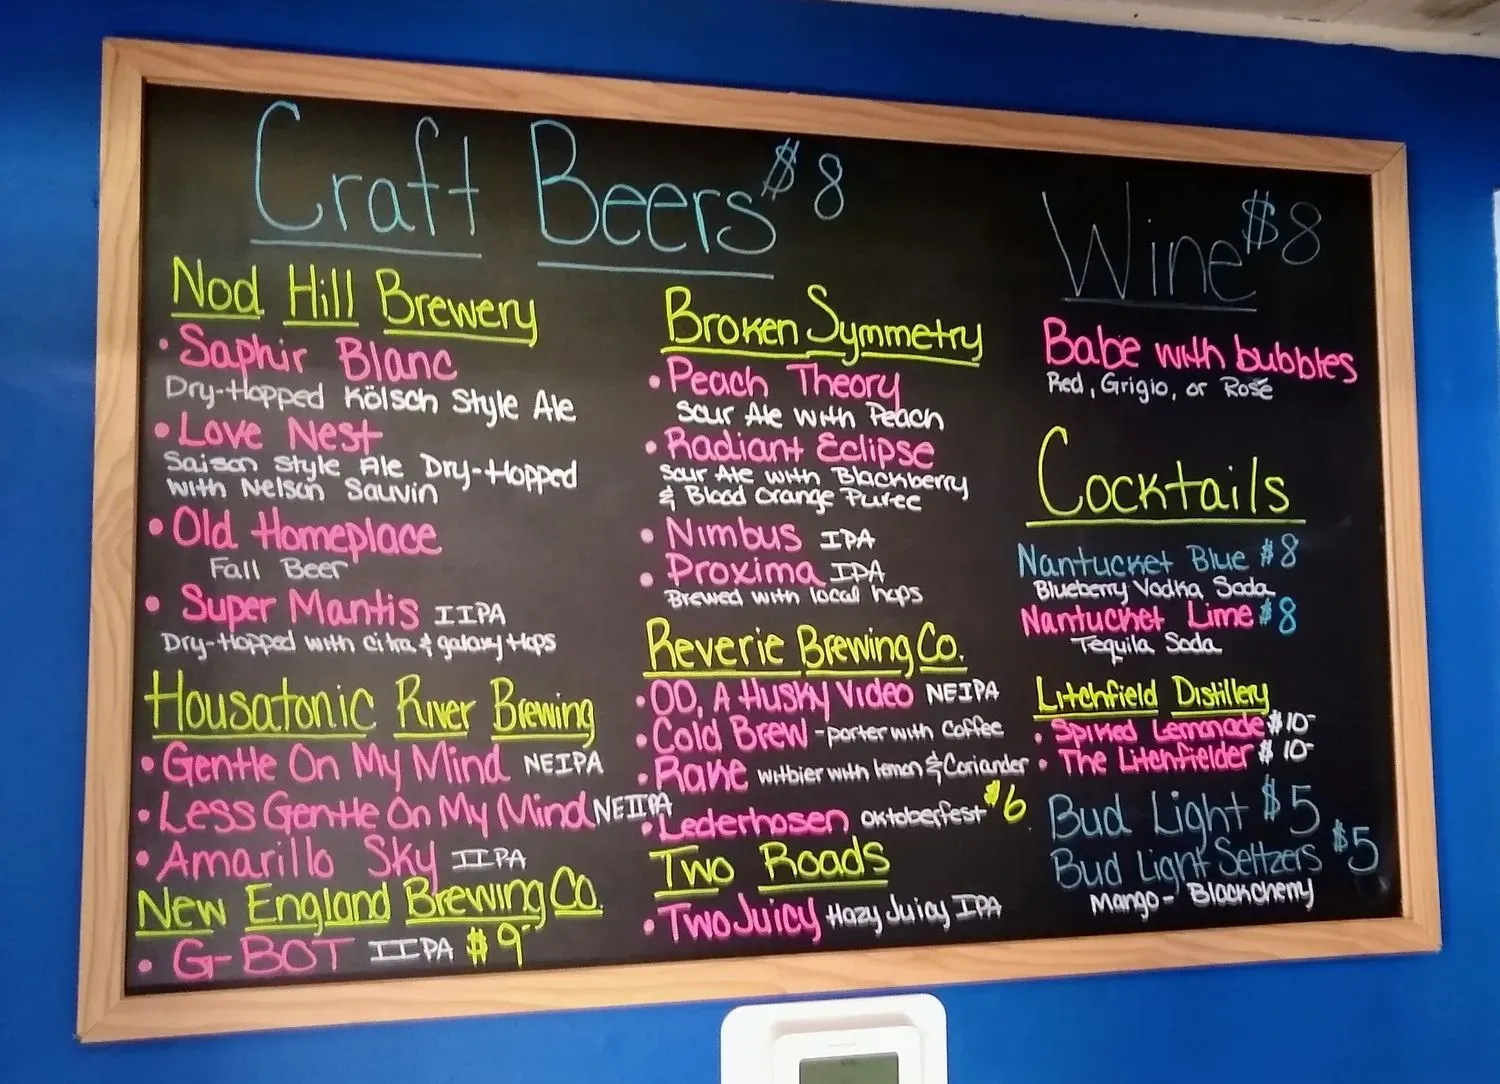 Craft Beers $8
Nod Hill Brewery
• Saphir Blanc
Dry-Hopped Kölsch Style Ale
• Love Nest
Saison Style Ale Dry-Hopped
with Nelson Sauvin
• Old Homeplace
Fall Beer
• Super Mantis IIPA
Dry-Hopped with citra & galaxy Hops
Housatonic River Brewing
• Gentle On My Mind NEIPA
• Less Gentle On My Mind NEIIPA
• Amarillo Sky IIPA
New England Brewing Co.
• G-BOT IIPA $9
Broken Symmetry
• Peach Theory
Sour Ale with Peach
• Radiant Eclipse
Sour Ale with Blackberry
& Blood Orange Puree
• Nimbus IPA
• Proxima IPA
Brewed with local hops
Reverie Brewing Co.
• OD, A Husky Video NEIPA
• Cold Brew - porter with coffee
• Rake witbier with lemon & Coriander
• Lederhosen Oktoberfest $6
Two Roads
• Two Juicy Hazy Juicy IPA
Wine $8
Babe with bubbles
Red, Grigio, or Rosé
Cocktails
Nantucket Blue $8
Blueberry Vodka Soda
Nantucket Lime $8
Tequila Soda
Litchfield Distillery
• Spiked Lemonade $10-
• The Litchfielder $10-
Bud Light $5
Bud Light Seltzers $5
Mango - Blackcherry